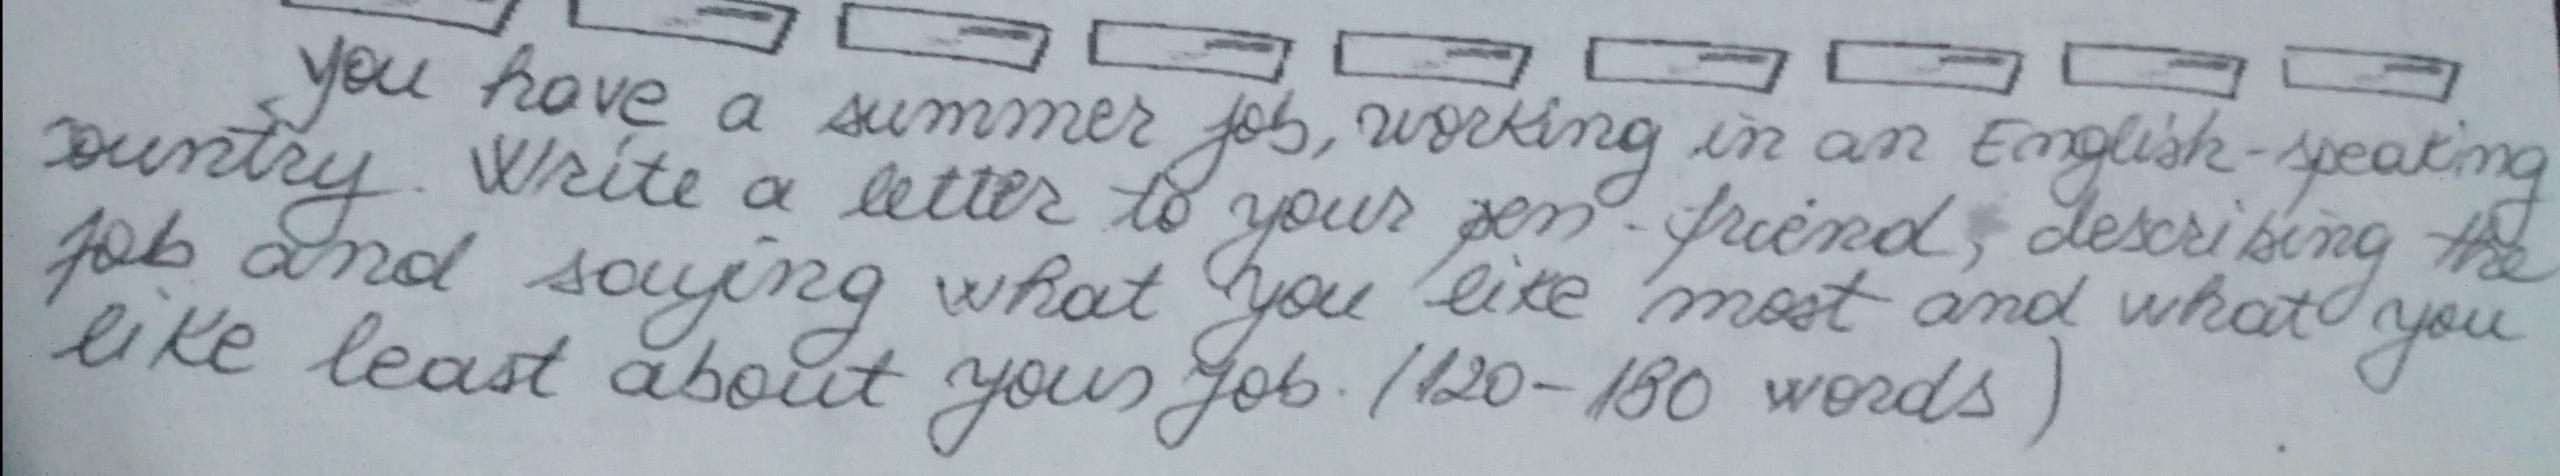 you have a summer job, working in an English-speaking
country. Write a letter to your pen-friend, describing the
job and saying what you like most and what you
like least about your job. (120-180 words)